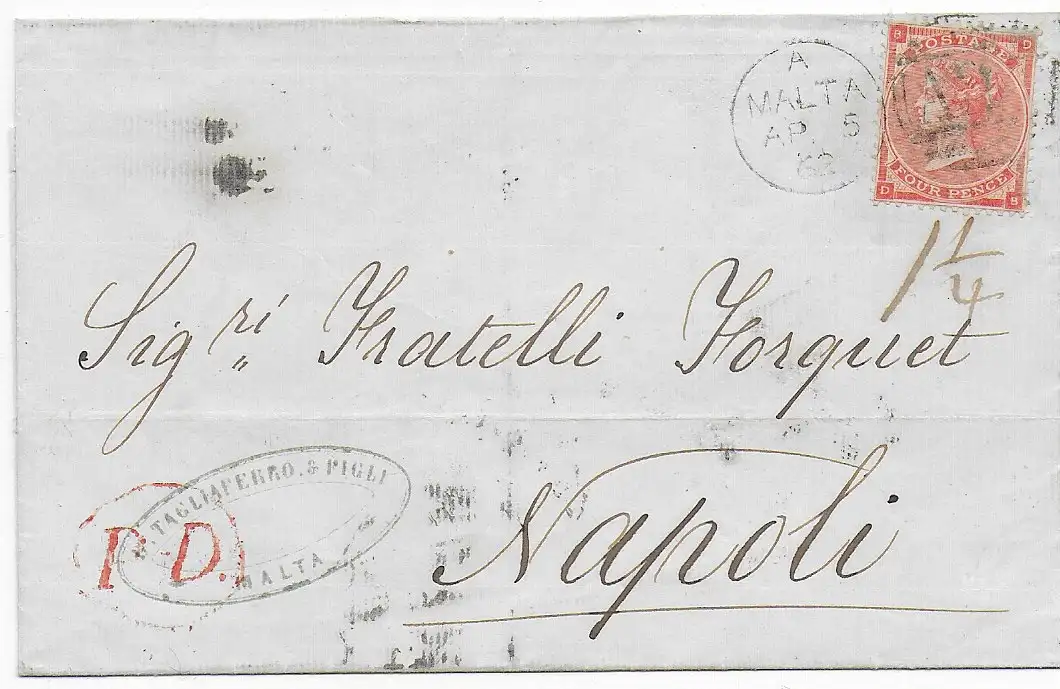 A
MALTA
AP 5
62
B D
POSTAGE
FOUR PENCE
D B
1 1/4
Sig.ri Fratelli Forquet
Napoli
TAGLIAFERRO & FIGLI
MALTA
P.D.